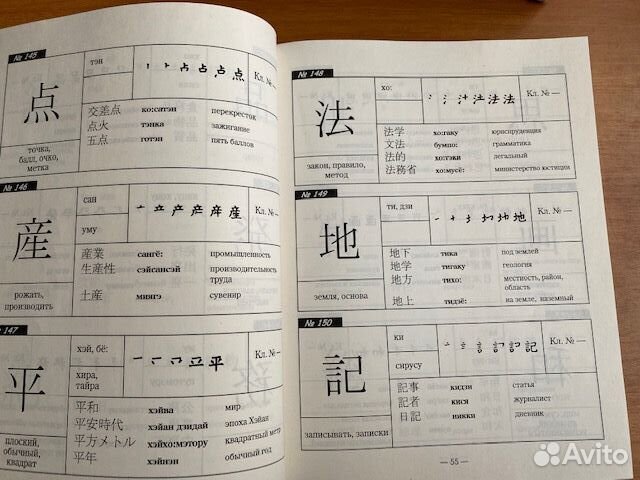 № 145
点
тэн
Кл. № —
交差点 ко:сатэн перекресток
点火 тэнка зажигание
五点 готэн пять баллов
точка,
балл, очко,
метка
№ 146
産
сан
уму
Кл. № —
産業 сангё: промышленность
生産性 сэйсансэй производительность
труда
土産 миягэ сувенир
рожать,
производить
147
平
хэй, бё:
хира,
тайра
Кл. № —
平和 хэйва мир
平安時代 хэйан дзидай эпоха Хэйан
平方メトル хэйхо:мэтору квадратный метр
平年 хэйнэн обычный год
плоский,
обычный,
квадрат
№ 148
法
хо:
Кл. № —
法学 хо:гаку юриспруденция
文法 бумпо: грамматика
法的 хо:тэки легальный
法務省 хо:мусё: министерство юстиции
закон, правило,
метод
№ 149
地
ти, дзи
Кл. № —
地下 тика под землей
地学 тигаку геология
地方 тихо: местность, район,
область
地上 тидзё: на земле, наземный
земля, основа
№ 150
記
ки
сирусу
Кл. № —
記事 кидзи статья
記者 кися журналист
日記 никки дневник
записывать, записки
— 55 —
Avito